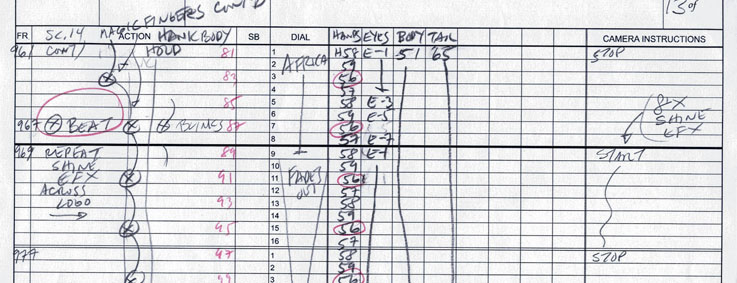 MAGIC FINGERS CONT'D
13 of
FR SC.14 ACTION HANK BODY SB DIAL HANDS EYES BODY TAIL CAMERA INSTRUCTIONS
961 CONT/ HOLD 81 1 AFRICA H58 E-1 51 65 STOP
2 59
83 3 56
4 57
85 5 58 E-3 8X
6 59 E-5 SHINE
967 BEAT BLINKS 87 7 56 EFX
8 57 E-7
969 REPEAT 89 9 58 E-1 START
SHINE 10 59
EFX 91 11 FADES 56
ACROSS 12 OUT 57
LOGO 93 13 58
14 59
95 15 56
16 57
977 97 1 58 STOP
2 59
99 3 56